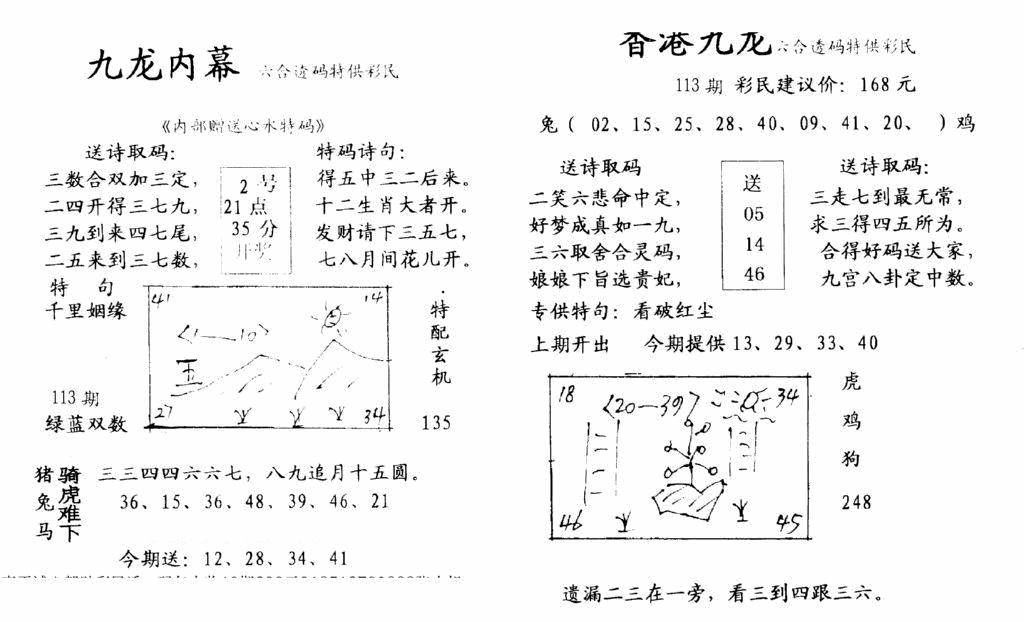 九龙内幕 六合透码特供彩民
《内部赠送心水特码》
送诗取码：
三数合双加三定，
二四开得三七九，
三九到来四七尾，
二五来到三七数，
2 号
21 点
35 分
开奖
特码诗句：
得五中三二后来。
十二生肖大者开。
发财请下三五七，
七八月间花儿开。
特 句
千里姻缘
113 期
绿蓝双数
41
14
〈1—10〉
五
27
34
特
配
玄
机
135
猪
兔
马
骑
虎
难
下
三三四四六六七，八九追月十五圆。
36、15、36、48、39、46、21
今期送：12、28、34、41
香港九龙 六合透码特供彩民
113 期 彩民建议价：168 元
兔（ 02、15、25、28、40、09、41、20、 ）鸡
送诗取码
二笑六悲命中定，
好梦成真如一九，
三六取舍合灵码，
娘娘下旨选贵妃，
送
05
14
46
送诗取码：
三走七到最无常，
求三得四五所为。
合得好码送大家，
九宫八卦定中数。
专供特句：看破红尘
上期开出 今期提供 13、29、33、40
18
〈20—39〉
34
46
45
虎
鸡
狗
248
遗漏二三在一旁，看三到四跟三六。